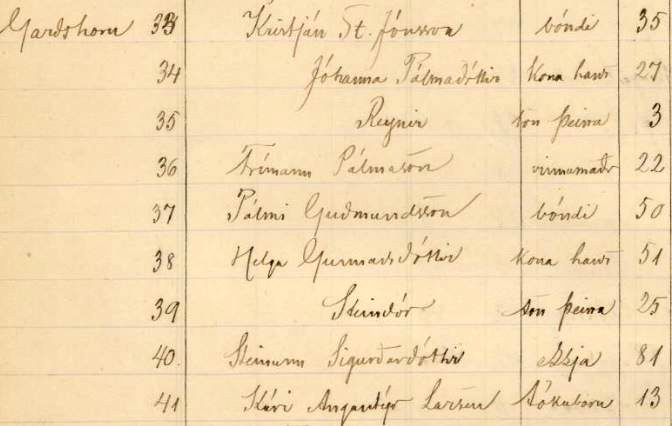 Garðshorn 33 Kristján St. Jónsson bóndi 35
34 Jóhanna Pálmadóttir kona hans 27
35 Reynir son þeirra 3
36 Frímann Pálmason vinnumaðr 22
37 Pálmi Guðmundsson bóndi 50
38 Helga Gunnarsdóttir kona hans 51
39 Steindór son þeirra 25
40 Steinunn Sigurðardóttir ekkja 81
41 Kári Angantýr Larsen tökubarn 13